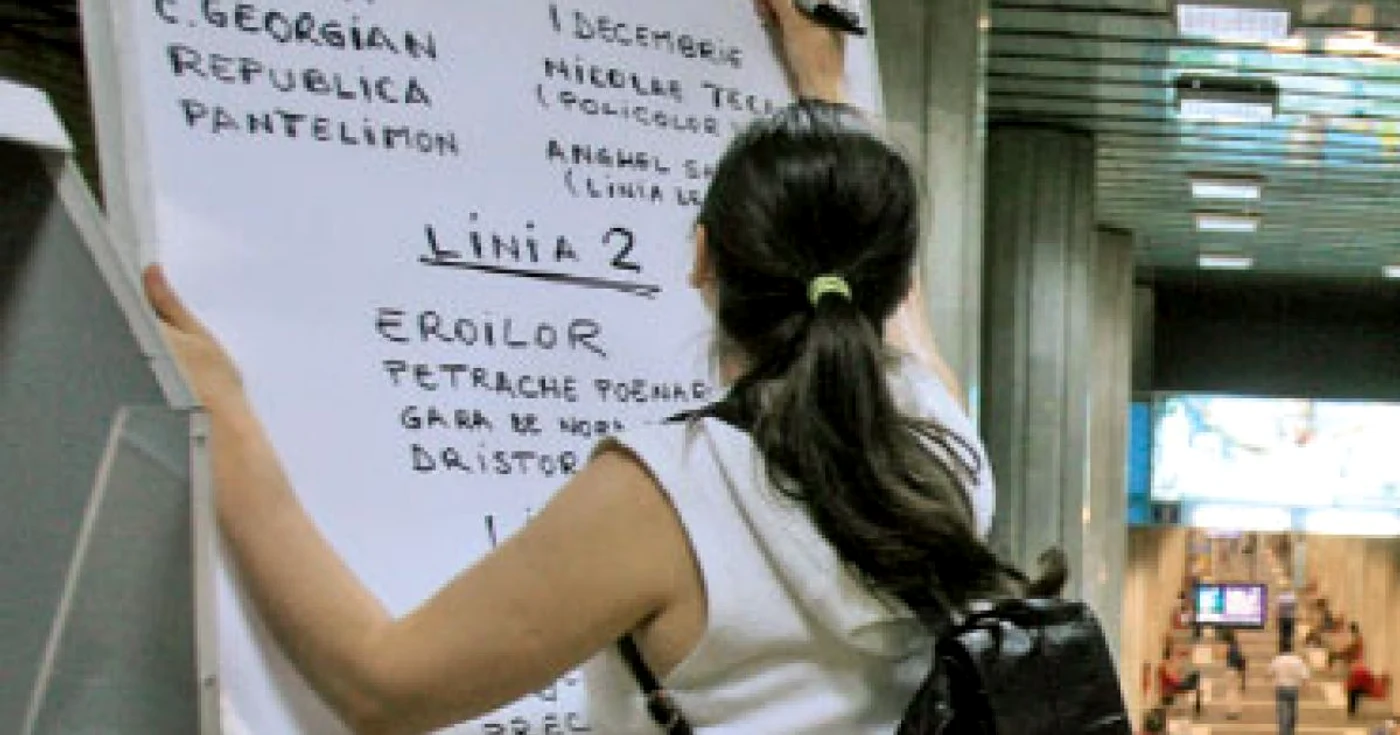 C. GEORGIAN
REPUBLICA
PANTELIMON
1 DECEMBRIE
NICOLAE TECL
(POLICOLOR
ANGHEL
(LINIA
LINIA 2
EROILOR
PETRACHE POENAR
GARA DE NORD
DRISTOR
PREC